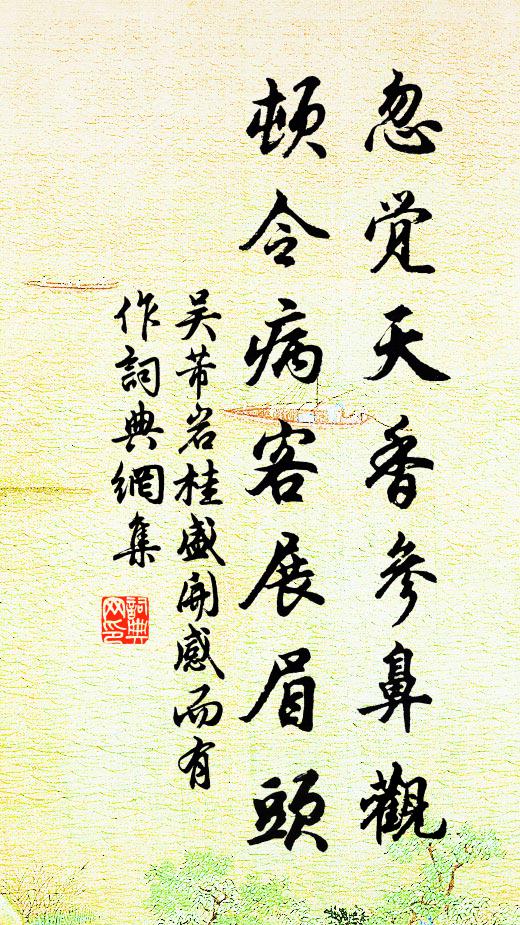 忽觉天香參鼻觀
頓令病客展眉頭
吴芾岩桂盛開感而有
作詞典網集
詞典网印